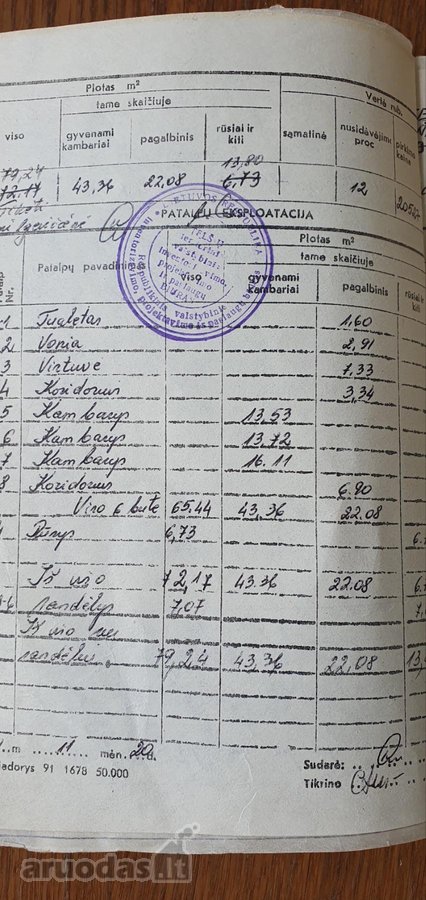 Plotas m²
Vertė rub.
tame skaičiuje
viso gyvenami kambariai pagalbinis rūsiai ir kiti sąmatinė nusidėvėjimo proc
79,24 13,80
72.17 43,36 22,08 6,73 12
PATALPŲ EKSPLOATACIJA
Plotas m²
tame skaičiuje
Nr. Patalpų pavadinimas viso gyvenami kambariai pagalbinis
1 Tualetas 1,60
2 Vonia 2,91
3 Virtuvė 7,33
4 Koridorius 3,34
5 Kambarys 13,53
6 Kambarys 13,72
7 Kambarys 16.11
8 Koridorius 6.90
Viso 6 bute 65.44 43,36 22.08
Rūsys 6,73
Iš viso 72,17 43.36 22.08
sandėlys 7,07
Iš viso su
sandėliu 79,24 43,36 22,08
m ....11.... mėn. 20 d.
91 1678 50.000
Sudarė:
Tikrino
aruodas.lt